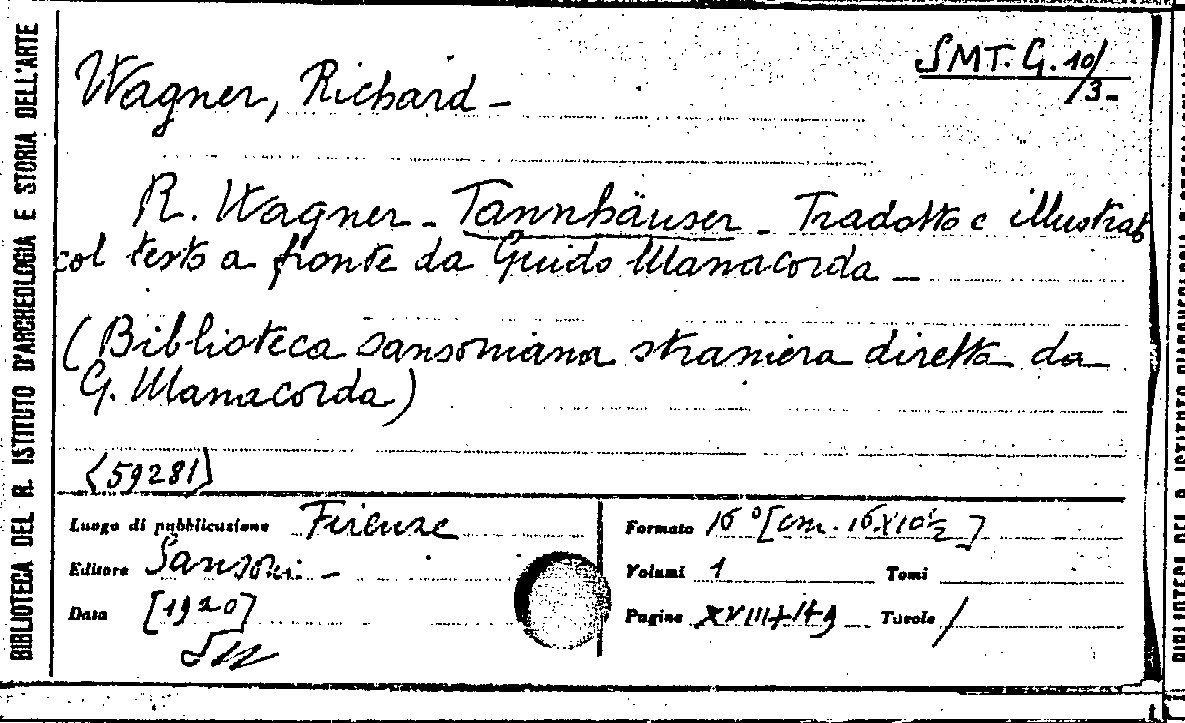 BIBLIOTECA DEL R. ISTITUTO D'ARCHEOLOGIA E STORIA DELL'ARTE
SMT. G. 10/
13-
Wagner, Richard -
R. Wagner - Tannhäuser - Tradotto e illustrato
col testo a fronte da Guido Manacorda -
(Biblioteca sansoniana straniera diretta da
G. Manacorda)
(59281)
Luogo di pubblicazione Firenze
Editore Sansoni -
Data [1920]
Formato 16° [cm. 16x10½]
Volumi 1 Tomi
Pagine XVIII+149 Tavole /